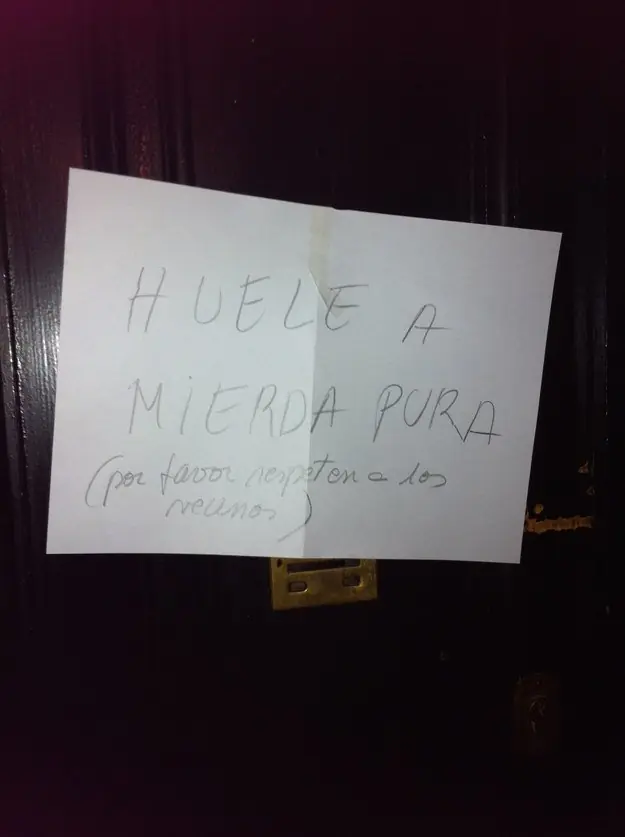 HUELE A
MiERDA PURA
(por favor respeten a los
vecinos)